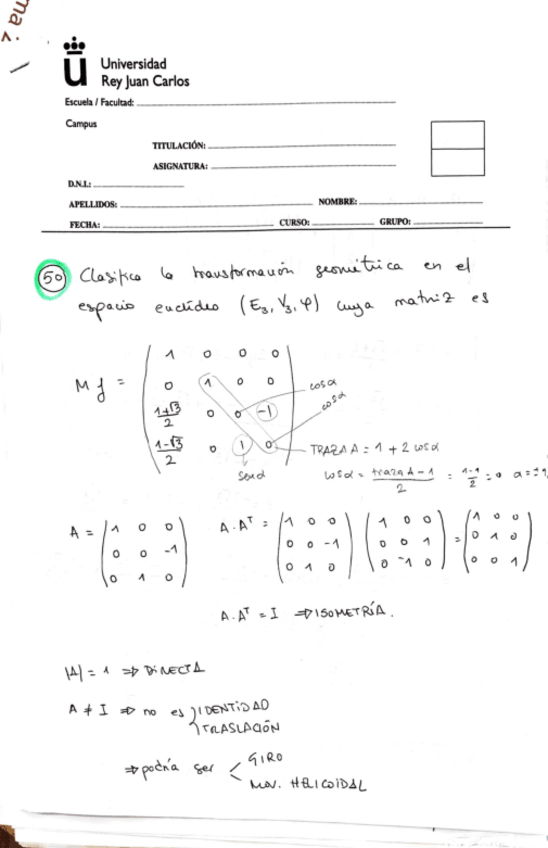 ma i
Universidad
Rey Juan Carlos
Escuela / Facultad:
Campus
TITULACIÓN:
ASIGNATURA:
D.N.I.:
APELLIDOS: NOMBRE:
FECHA: CURSO: GRUPO:
50 Clasifica la transformación geométrica en el
espacio euclídeo (E₃, V₃, φ) cuya matriz es
M f = ( 1 0 0 0
0 1 0 0 cos α
1+√3/2 0 0 -1 cos α
1-√3/2 0 1 0 ) TRAZA A = 1 + 2 cos α
cos α = traza A - 1 / 2 = 1-1 / 2 = 0
A = ( 1 0 0 A · Aᵀ = ( 1 0 0 ( 1 0 0 = ( 1 0 0
0 0 -1 0 0 -1 0 0 1 0 1 0
0 1 0 ) 0 1 0 ) 0 -1 0 ) 0 0 1 )
A · Aᵀ = I ⇒ ISOMETRÍA.
|A| = 1 ⇒ DIRECTA
A ≠ I ⇒ no es IDENTIDAD
TRASLACIÓN
⇒ podría ser < GIRO
MOV. HELICOIDAL